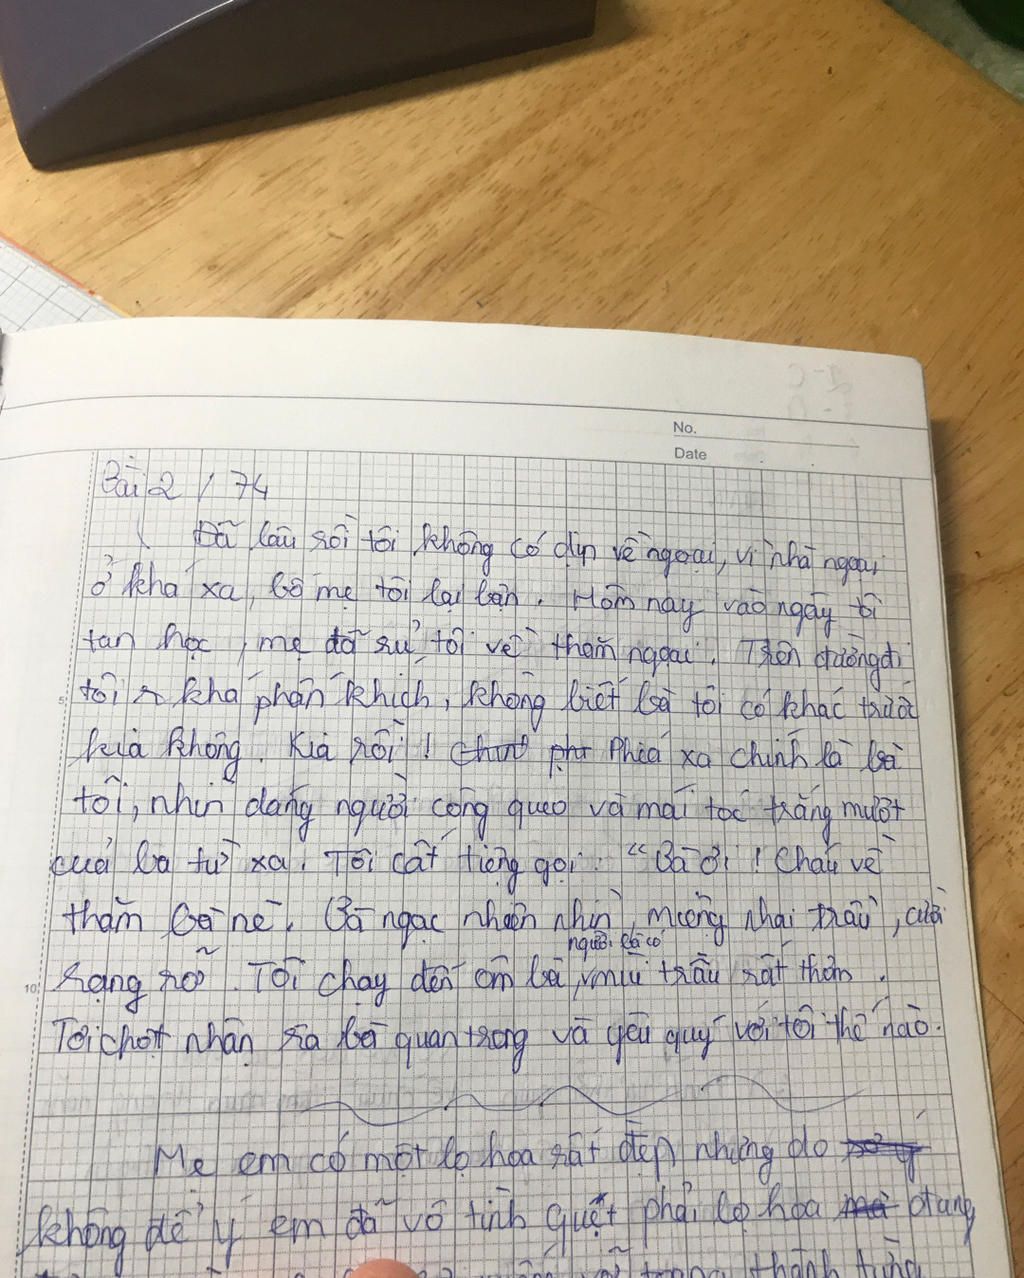 No.
Date
Bài 2 / 74
Đã lâu rồi tôi không có dịp về ngoại, vì nhà ngoại
ở khá xa, bố mẹ tôi lại bận. Hôm nay vào ngày tôi
tan học, mẹ đã rủ tôi về thăm ngoại. Trên đường đi
tôi khá phấn khích, không biết bà tôi có khác trước
kia không. Kia rồi! Phía xa chính là bà
tôi, nhìn dáng người còng queo và mái tóc trắng mướt
của bà từ xa. Tôi cất tiếng gọi: "Bà ơi! Cháu về
thăm bà nè. Bà ngạc nhiên nhìn, miệng nhai trầu, cười
người bà có
rạng rỡ. Tôi chạy đến ôm bà, mùi trầu rất thơm.
5
10
Tôi chợt nhận ra bà quan trọng và yêu quý với tôi thế nào.
Mẹ em có một lọ hoa rất đẹp nhưng do
không để ý em đã vô tình quệt phải lọ hoa đang
thành từng